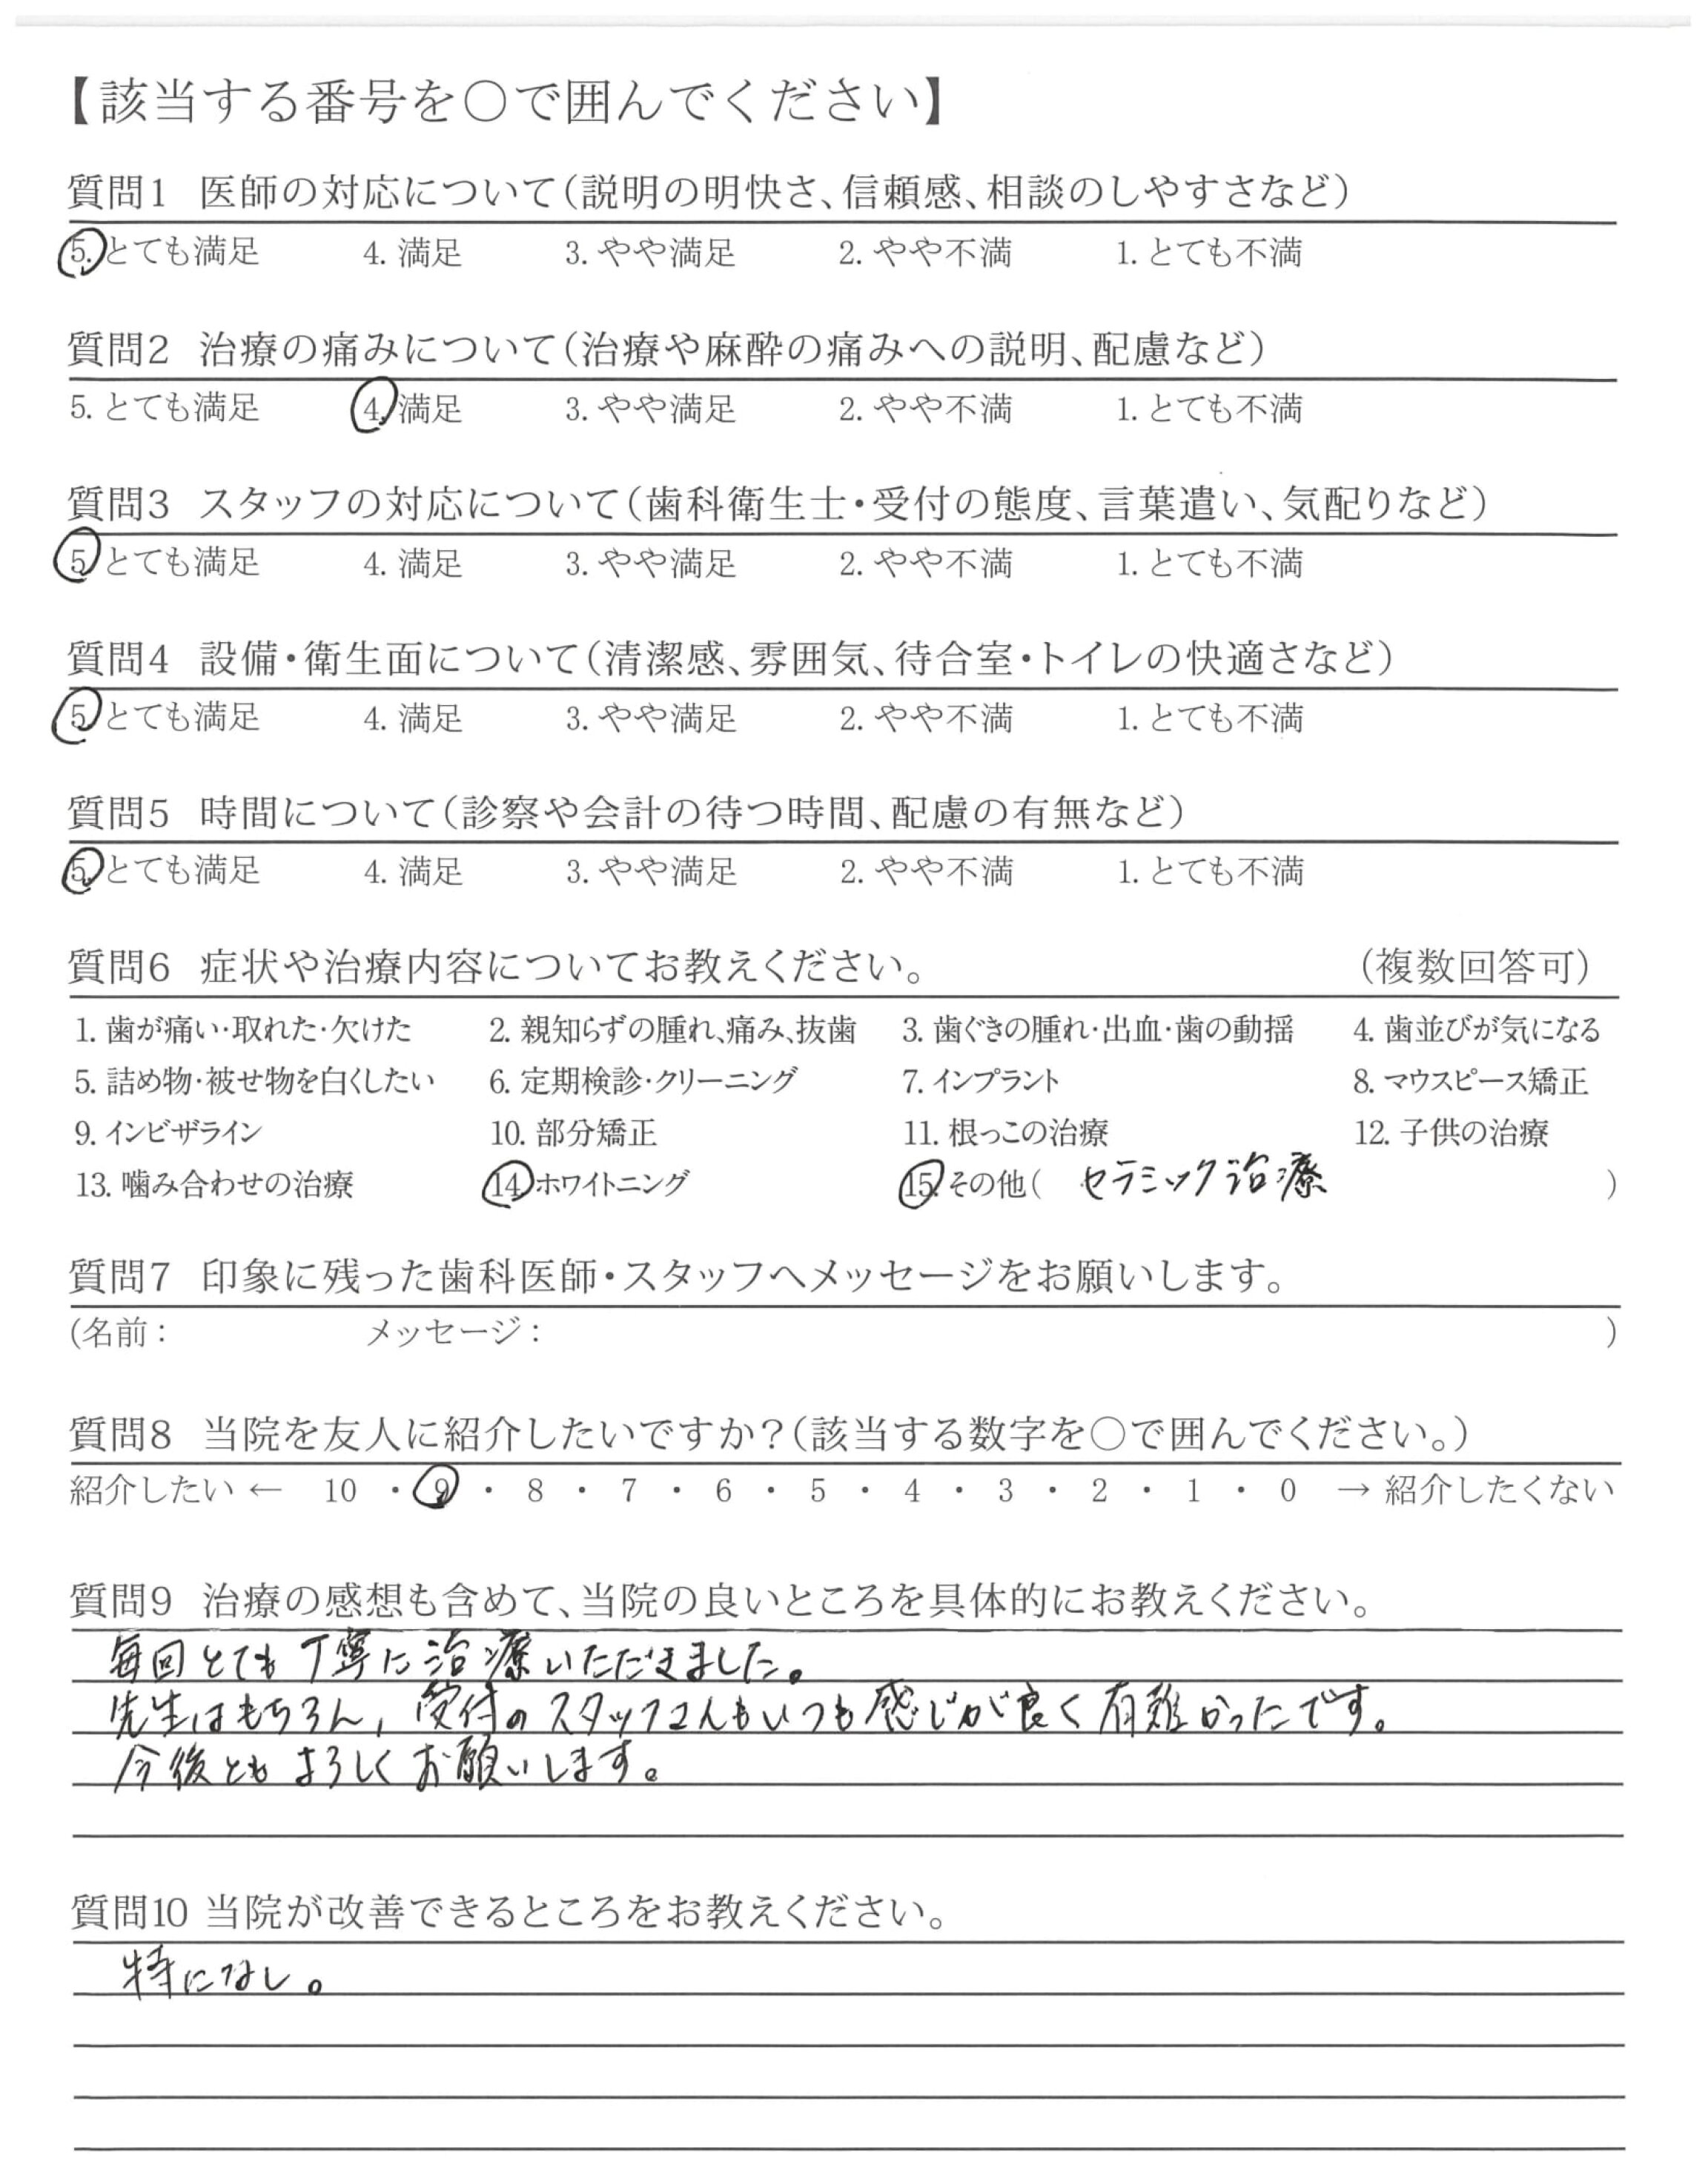 【該当する番号を○で囲んでください】
質問1 医師の対応について(説明の明快さ、信頼感、相談のしやすさなど)
5. とても満足 4. 満足 3. やや満足 2. やや不満 1. とても不満
質問2 治療の痛みについて(治療や麻酔の痛みへの説明、配慮など)
5. とても満足 4. 満足 3. やや満足 2. やや不満 1. とても不満
質問3 スタッフの対応について(歯科衛生士・受付の態度、言葉遣い、気配りなど)
5. とても満足 4. 満足 3. やや満足 2. やや不満 1. とても不満
質問4 設備・衛生面について(清潔感、雰囲気、待合室・トイレの快適さなど)
5. とても満足 4. 満足 3. やや満足 2. やや不満 1. とても不満
質問5 時間について(診察や会計の待つ時間、配慮の有無など)
5. とても満足 4. 満足 3. やや満足 2. やや不満 1. とても不満
質問6 症状や治療内容についてお教えください。 (複数回答可)
1. 歯が痛い・取れた・欠けた 2. 親知らずの腫れ、痛み、抜歯 3. 歯ぐきの腫れ・出血・歯の動揺 4. 歯並びが気になる
5. 詰め物・被せ物を白くしたい 6. 定期検診・クリーニング 7. インプラント 8. マウスピース矯正
9. インビザライン 10. 部分矯正 11. 根っこの治療 12. 子供の治療
13. 噛み合わせの治療 14. ホワイトニング 15. その他( セラミック治療 )
質問7 印象に残った歯科医師・スタッフへメッセージをお願いします。
(名前: メッセージ: )
質問8 当院を友人に紹介したいですか?(該当する数字を○で囲んでください。)
紹介したい ← 10 ・ 9 ・ 8 ・ 7 ・ 6 ・ 5 ・ 4 ・ 3 ・ 2 ・ 1 ・ 0 → 紹介したくない
質問9 治療の感想も含めて、当院の良いところを具体的にお教えください。
毎回とても丁寧に治療いただきました。
先生はもちろん, 受付のスタッフさんもいつも感じが良く有難かったです。
今後ともよろしくお願いします。
質問10 当院が改善できるところをお教えください。
特になし。